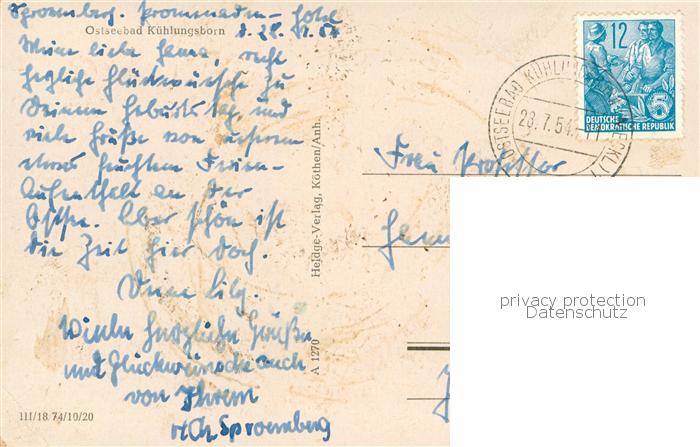 Sproemberg. Promenaden-Hotel
Ostseebad Kühlungsborn
d. 28. 7. 54
Meine liebe Henny, recht
herzliche Glückwünsche zu
Deinem Geburtstag, und
viele Grüße von unserem
etwas feuchten Ferien-
Aufenthalt an der
Ostsee. Aber schön ist
die Zeit hier doch.
Deine Lily.
Viele herzliche Grüße
und Glückwünsche auch
von Ihrem
Sproemberg
III/18 74/10/20
Heldge-Verlag, Köthen/Anh.
A 1270
12
DEUTSCHE
DEMOKRATISCHE REPUBLIK
OSTSEEBAD KÜHLUNGSBORN (MECKL)
28.7.54
Frau Professor
privacy protection
Datenschutz